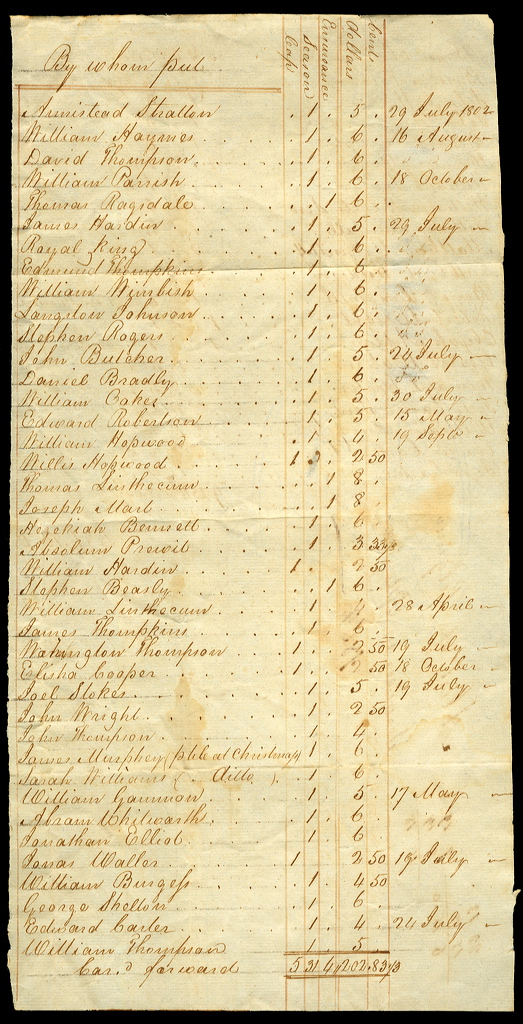 By whom put Leap Season Ensurance dollars Cents
Armistead Stratton . 1 . 5 . 29 July 1802
William Haymes . 1 . 6 . 16 August
David Thompson . 1 . 6 .
William Parrish . 1 . 6 . 18 October
Thomas Ragsdale . . 1 6 .
James Hardin . 1 . 5 . 29 July
Royal King . 1 . 6 .
Edmund Thompkins . 1 . 6 .
William Wimbish . 1 . 6 .
Langston Johnson . 1 . 6 .
Stephen Rogers . 1 . 6 .
John Butcher . 1 . 5 . 24 July
Daniel Bradly . 1 . 6 . do
William Oakes . 1 . 5 . 30 July
Edward Robertson . 1 . 5 . 15 May
William Hopwood . 1 . 4 . 19 Septr
Willis Hopwood 1 . . 2 50
Thomas Linthecum . . 1 8 .
Joseph Mart . . 1 8 .
Hezekiah Bennett . 1 . 6 .
Absolum Prewit . 1 . 3 33 1/3
William Hardin 1 . . 2 50
Stephen Beasly . . 1 6 .
William Linthecum . 1 . 4 . 28 April
James Thompkins . 1 . 6 .
Washington Thompson 1 . . 2 50 19 July
Elisha Cooper 1 . . 2 50 18 October
Joel Stokes . 1 . 5 . 19 July
John Wright . 1 . 2 50
John Thompson . 1 . 4 .
James Murphey (ptble at Christmas) 1 . 6 .
Sarah Williams ( . ditto ) . 1 . 6 .
William Gammon . 1 . 5 . 17 May
Abram Whitworth . 1 . 6 .
Jonathan Elliot . 1 . 6 .
Jonas Waller 1 . . 2 50 19 July
William Burgess . 1 . 4 50
George Shelton . 1 . 6 .
Edward Carter . 1 . 4 . 24 July
William Thompson . 1 . 5 .
Car.d forward 5 31 4 202.83 1/3